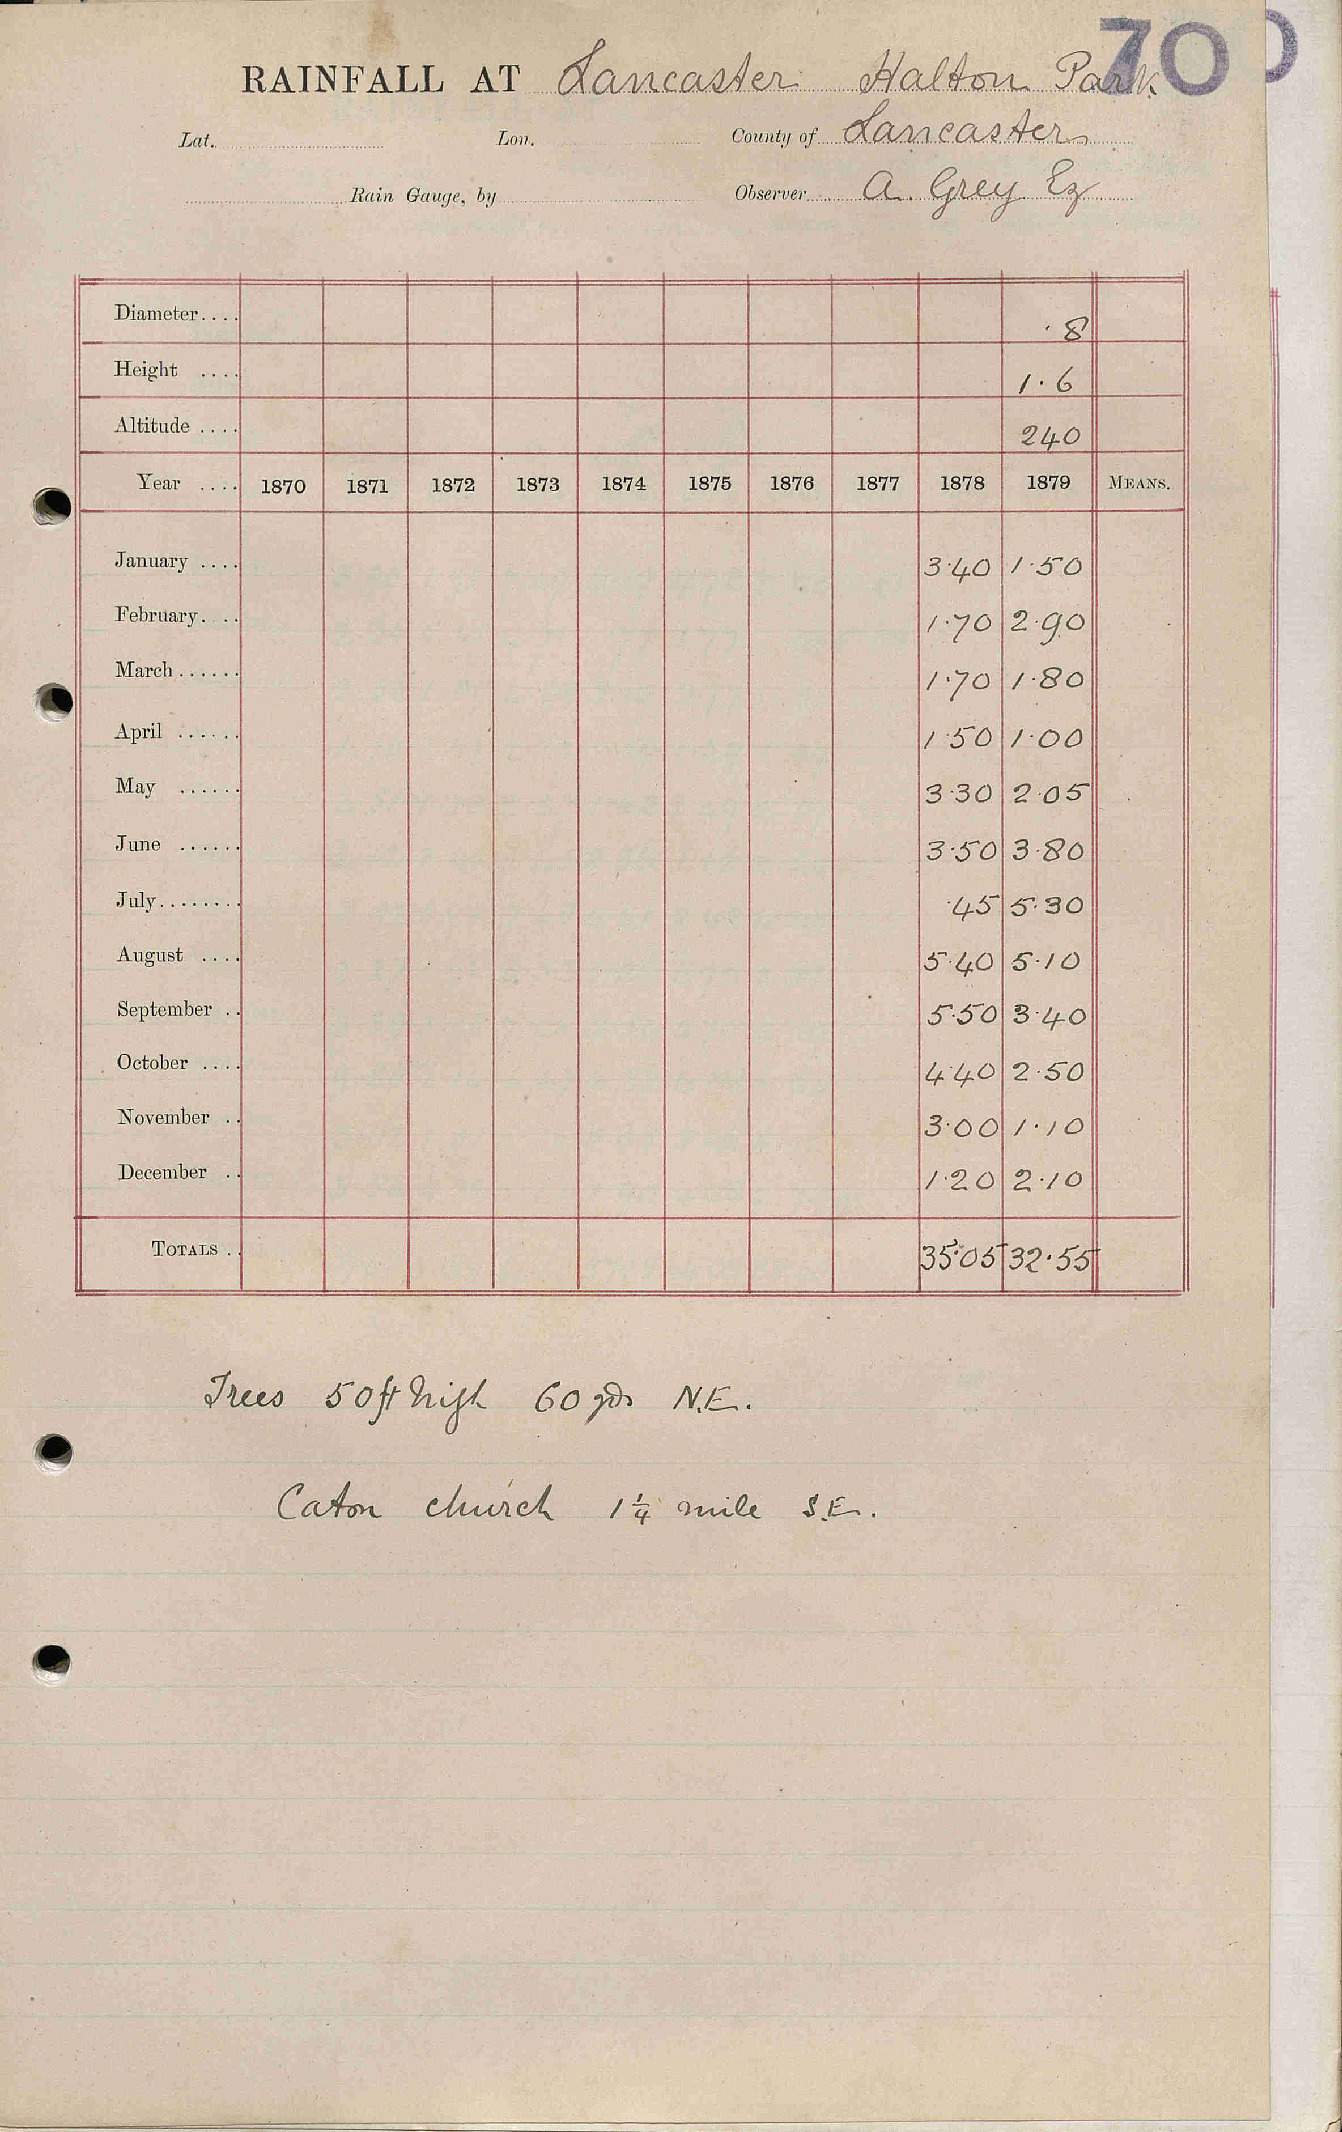 70
RAINFALL AT Lancaster Halton Park
Lat. Lon. County of Lancaster
Rain Gauge, by Observer A. Grey Eq
Diameter.... ·8
Height .... 1·6
Altitude .... 240
Year .... 1870 1871 1872 1873 1874 1875 1876 1877 1878 1879 MEANS.
January .... 3·40 1·50
February... 1·70 2·90
March...... 1·70 1·80
April ...... 1·50 1·00
May ...... 3·30 2·05
June ...... 3·50 3·80
July........ ·45 5·30
August .... 5·40 5·10
September .. 5·50 3·40
October .... 4·40 2·50
November .. 3·00 1·10
December .. 1·20 2·10
TOTALS .. 35·05 32·55
Trees 50ft high 60 yds N.E.
Caton church 1¼ mile S.E.